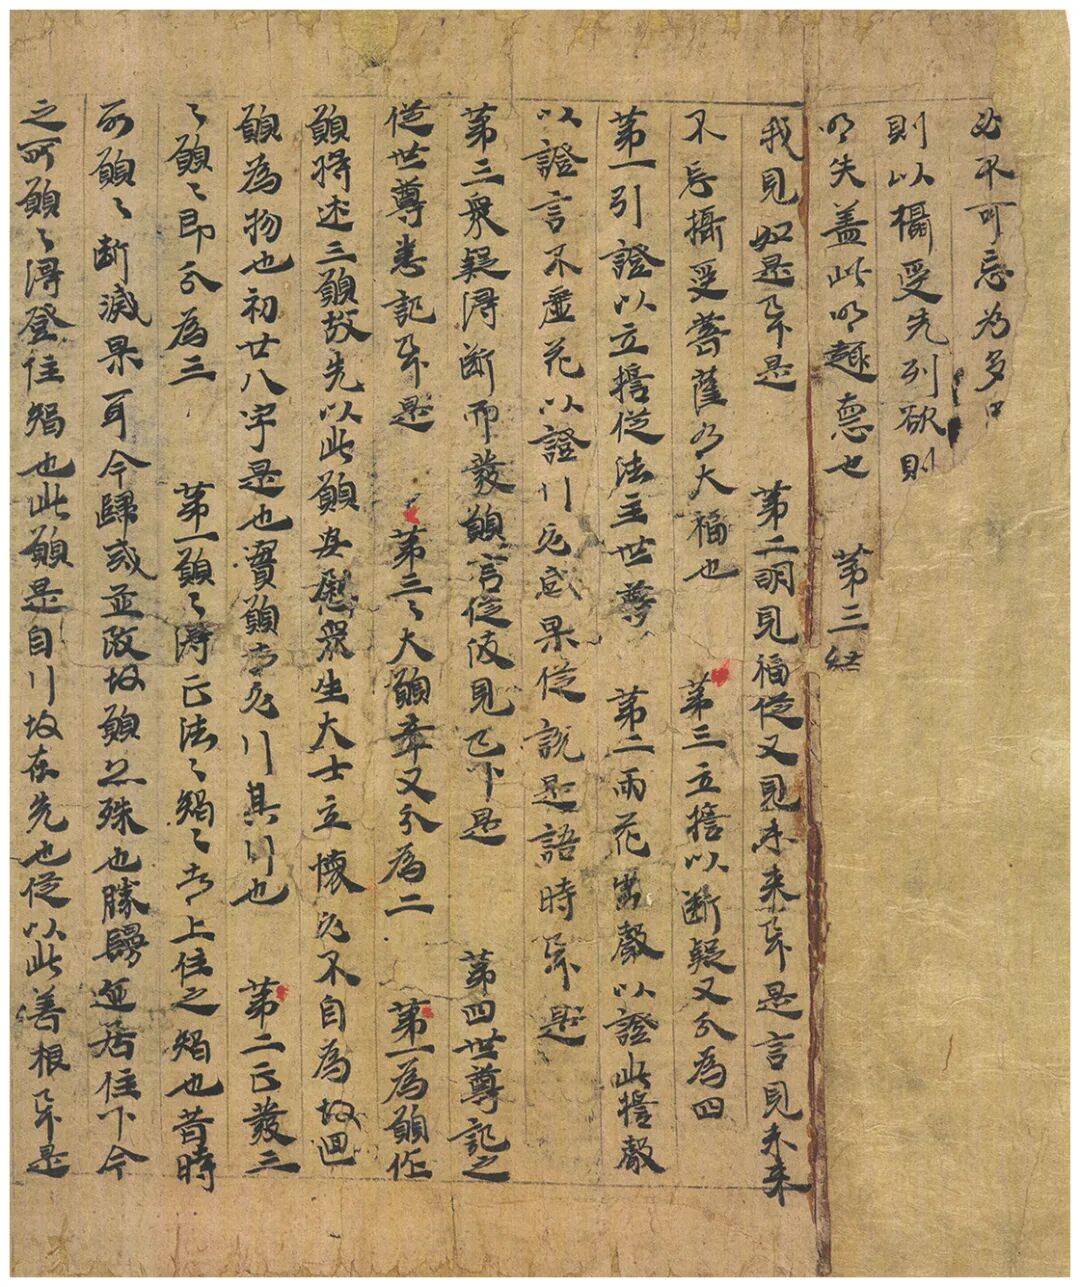 必不可忘為多
則以攝受先列欲則
明失盖此明趣意也　第三結
我見如是下是　第二明見福從又見未来下是言見未来
不忘攝受菩薩有大福也　第三立誓以断疑又分為四
第一引證以立誓從法主世尊　第二雨花出聲以證此誓聲
以證言不虛花以證行必感果從說是語時下是
第三衆疑得断而發願言從彼見已下是　第四世尊記之
從世尊悉記下是　第三三大願章又分為二　第一為願作
願將述三願故先以此願安慰衆生大士立懷必不自為故迴
願為物也初廿八字是也實願者必行其行也　第二正發三
〻願〻即分為三　第一願〻得正法〻智〻者上住之智也昔時
所願〻断滅果耳今歸戒並改故願亦殊也勝鬘迹居住下今
之所願〻得登住智也此願是自行故在先也從以此善根下是